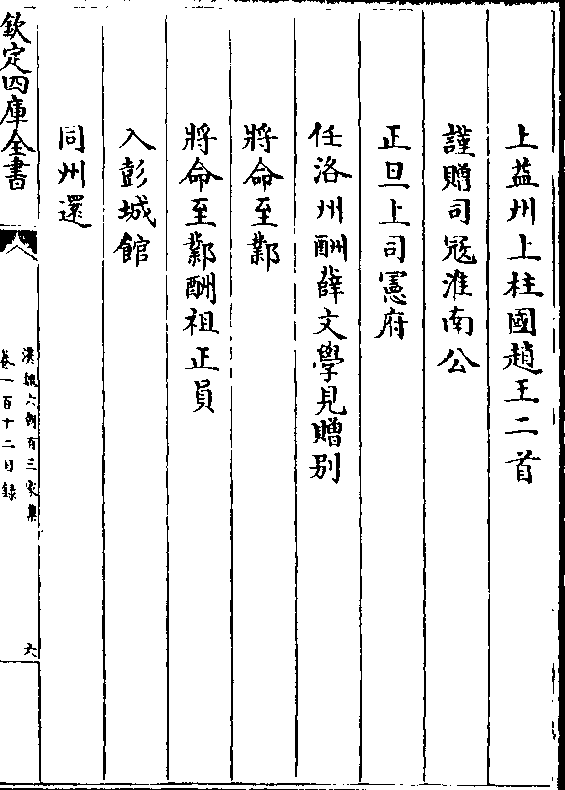 上益州上柱國趙王二首
謹贈司冦淮南公
正旦上司憲府
任洛州酬薛文學見贈別
將命至鄴
將命至鄴酬祖正員
入彭城館
同州還
欽定四庫全書
漢魏六朝百三家集
卷一百十二目錄
六